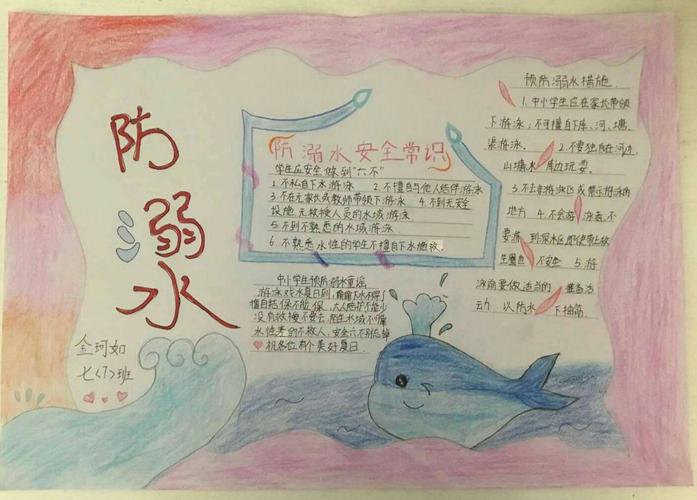 防溺水
金珂如
七〈7〉班
防溺水安全常识
学生应安全做到"六不"
1.不私自下水游泳 2.不擅自与他人结伴游泳
3.不在无家长或教师带领下游泳 4.不到无安全
设施、无救援人员的水域游泳
5.不到不熟悉的水域游泳
6.不熟悉水性的学生不擅自下水施救.
中小学生预防溺水童谣
游泳戏水夏日到,
擅自结 保不能保,大人陪护不能少
没有救援不要去,陌生水域不
水性 不救人,安全六不别忘掉
祝各位有个美好夏日
预防溺水措施
1.中小学生应在家长带领
下游泳;不可擅自下库、河、塘、
渠游泳. 2.不要独自在河边、
山塘水 周边玩耍.
3.不去非游泳区或禁示游泳的
地方 4.不会游 泳者,不
要游 到深水区,即使带上救
生圈也 不安全 5.游
泳前要做适当的 准备活
动 以防水 下抽筋.